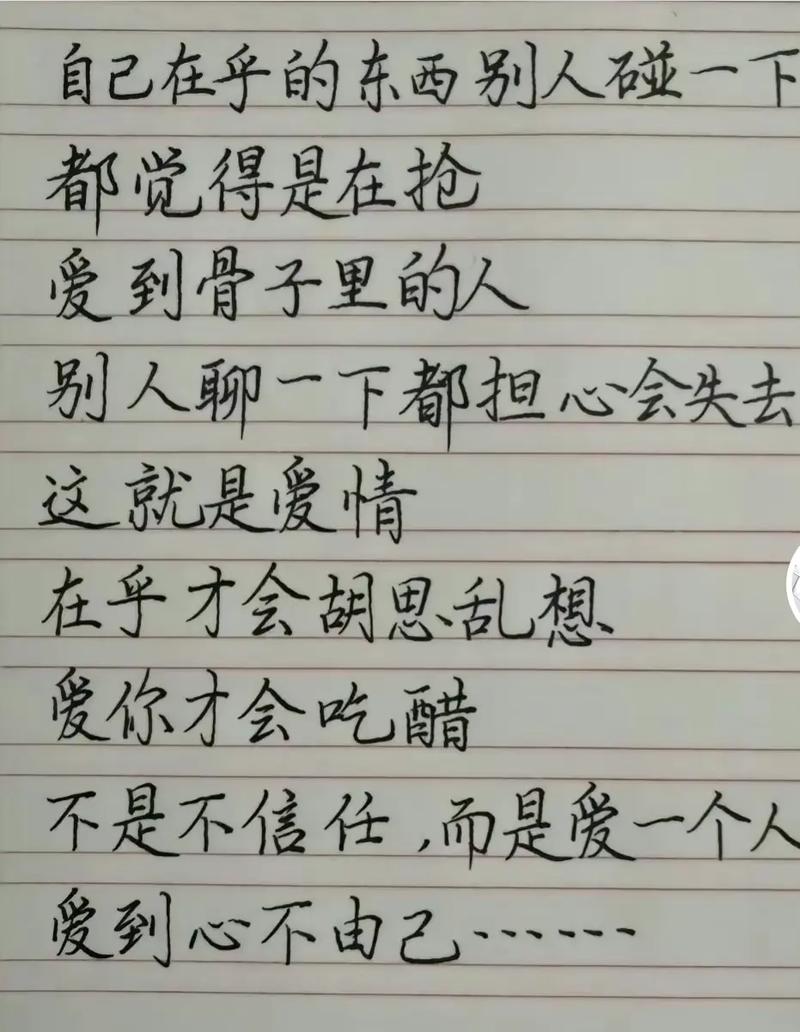 自己在乎的东西别人碰一下
都觉得是在抢
爱到骨子里的人
别人聊一下都担心会失去
这就是爱情
在乎才会胡思乱想
爱你才会吃醋
不是不信任，而是爱一个人
爱到心不由己……